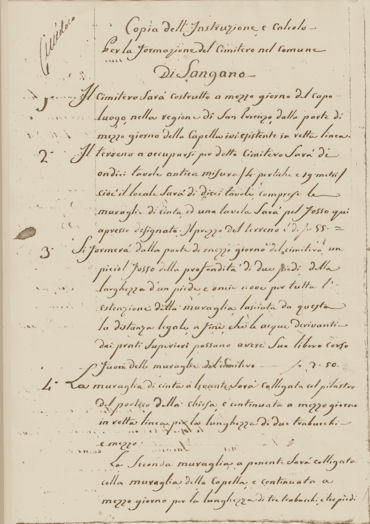 Cimitero
Copia dell'Instruzione e Calcolo
Per la formazione del Cimitero nel Comune
Di Sangano
1° Il Cimitero Sarà costrutto a mezzo giorno del Capo-
luogo nella regione di San Lorenzo dalla parte di
mezzo giorno della Capella ivi esistente in retta linea
2° Il terreno a occuparsi per detto Cimitero Sarà di
ondici tavole antica misura
cioè il locale Sarà di dieci tavole comprese le
muraglie di cinta, ed una tavola Sarà pel fosso qui
apresso designato Il prezzo del terreno è di f. 55 =
3° Si formerà dalla parte di mezzo giorno del Cimitero un
piciol fosso della profondità di due piedi della
larghezza d'un piede e oncie nove per tutta l'
estenzione della muraglia lasciata da questa
la distanza legale a fine che le acque derivanti
dai prati Superiori possano avere Suo libero corso
fuori delle muraglie del Cimitero f. 7. 50.
4° La muraglia di cinta a levante Sarà colligata col pilastro
del portico della chiesa, e continuata a mezzo giorno
in retta linea per la lunghezza di due trabucchi
e mezzo
La Seconda muraglia a ponente Sarà colligata
colla muraglia della Capella, e continuata a
mezzo giorno per la lunghezza di tre trabucchi, tre piedi